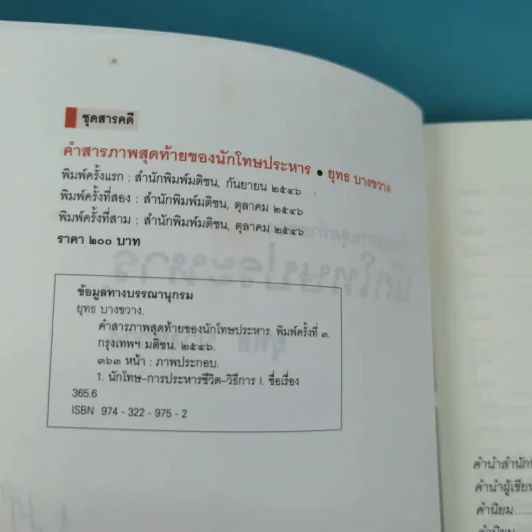 ชุดสารคดี
คำสารภาพสุดท้ายของนักโทษประหาร • ยุทธ บางขวาง
พิมพ์ครั้งแรก : สำนักพิมพ์มติชน, กันยายน ๒๕๔๖
พิมพ์ครั้งที่สอง : สำนักพิมพ์มติชน, ตุลาคม ๒๕๔๖
พิมพ์ครั้งที่สาม : สำนักพิมพ์มติชน, ตุลาคม ๒๕๔๖
ราคา ๒๐๐ บาท
ข้อมูลทางบรรณานุกรม
ยุทธ บางขวาง.
คำสารภาพสุดท้ายของนักโทษประหาร. พิมพ์ครั้งที่ ๓.
กรุงเทพฯ มติชน. ๒๕๔๖.
๓๖๓ หน้า : ภาพประกอบ.
1. นักโทษ-การประหารชีวิต-วิธีการ I. ชื่อเรื่อง
365.6
ISBN 974 - 322 - 975 - 2
คำนำสำนัก
คำนำผู้เขียน
คำนิยม.....
คำนิยม